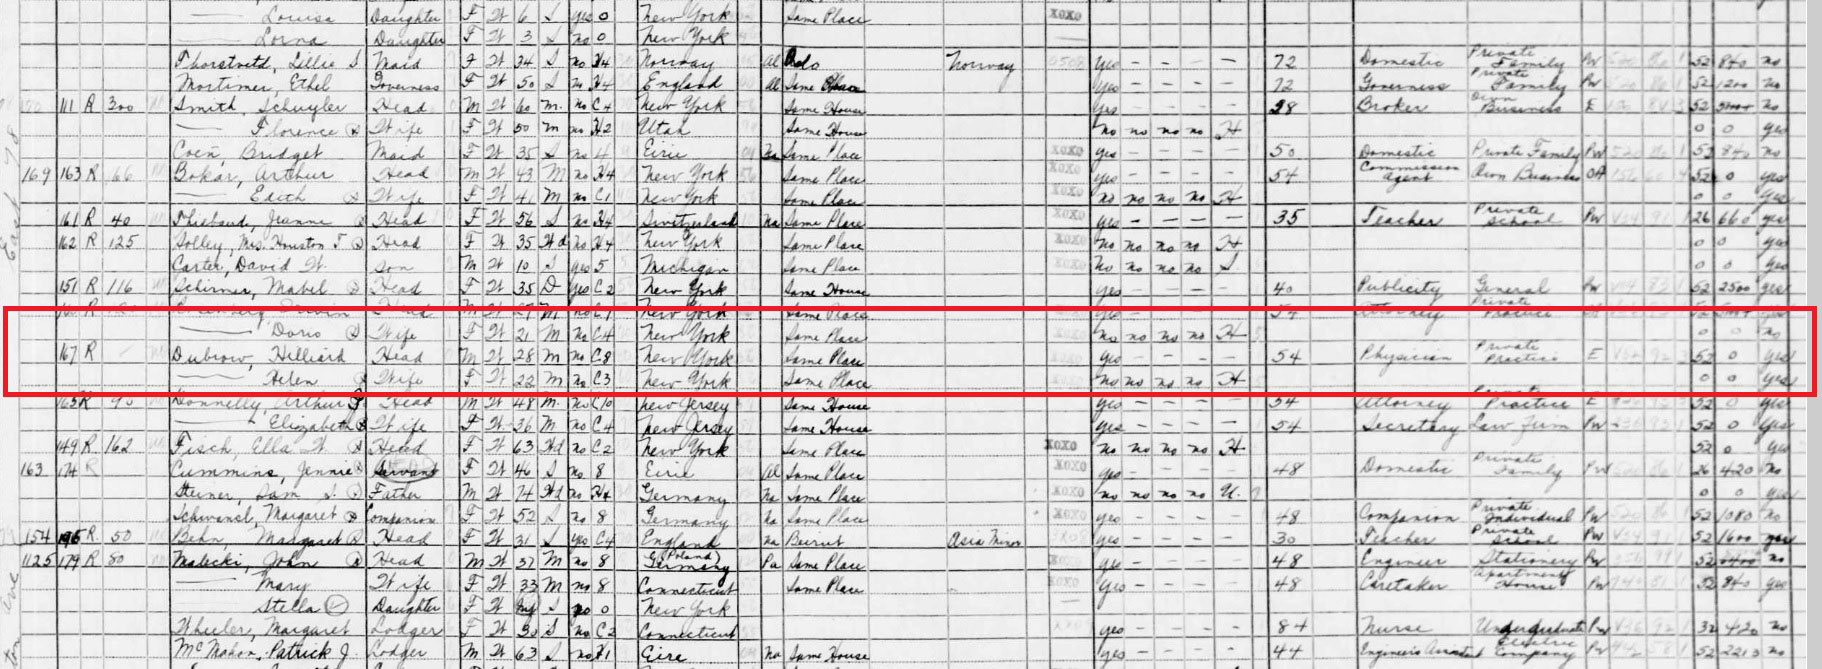 Louisa Daughter F W 6 S yes 0 New York Same Place
Lorna Daughter F W 3 S no 0 New York
Lillie S Maid F W 34 S no H4 Norway Al Oslo Norway yes - - - - 72 Domestic Private Family PW 52 840 no
Mortimer, Ethel Governess F W 50 S no H4 England Al Same Place yes - - - - 72 Governess Private Family PW 52 1200 no
111 R 300 Smith, Schuyler Head M W 60 M no C4 New York Same House yes - - - - 28 Broker Own Business E 52 no
Florence Wife F W 50 M no H2 Utah Same House no no no no H 0 0 yes
Coen, Bridget Maid F W 35 S no 4 Eire Na Same Place yes - - - - 50 Domestic Private Family PW 52 840 no
169 163 R 66 Bokar, Arthur Head M W 43 M no H4 New York Same Place yes - - - - 54 Commission agent Own Business OA 52 0 yes
Edith Wife F W 41 M no C1 New York Same Place no no no no H 0 0 yes
161 R 40 Thiebaud, Jeanne Head F W 56 S no H4 Switzerland Na Same Place yes - - - - 35 Teacher Private School PW 26 660 yes
162 R 125 Solley, Mrs. Houston T Head F W 35 Wd no H4 New York Same Place no no no no H 0 0 yes
Carter, David W. son M W 10 S yes 5 Michigan Same Place no no no no S 0 0 yes
151 R 116 Schirmer, Mabel Head F W 35 D yes C2 New York Same House yes - - - - 40 Publicity General PW 52 2500 yes
M W 27 M no C1 New York Same Place yes - - - - 54 Attorney Private Practice 52 yes
Doris Wife F W 21 M no C4 New York Same Place no no no no H 0 0 no
167 R Dubrow, Hilliard Head M W 28 M no C8 New York Same Place yes - - - - 54 Physician Private Practice E 52 0 yes
Helen Wife F W 22 M no C3 New York Same Place no no no no H 0 0 yes
163 R 90 Donnelly, Arthur Head M W 48 M no C10 New Jersey Same House yes - - - - 54 Attorney Private Practice E 52 0 yes
Elizabeth Wife F W 36 M no C4 New Jersey Same House yes - - - - 54 Secretary Law Firm PW 52 0 yes
149 R 162 Fisch, Ella W. Head F W 63 Wd no C2 New York Same Place no no no no H 52 0 yes
163 174 R Cummins, Jennie Servant F W 46 S no 8 Eire Al Same Place yes - - - - 48 Domestic Private Family PW 26 420 no
Steiner, Sam S. Father M W 74 Wd no H4 Germany Na Same Place no no no no U 0 0 yes
Margaret Companion F W 52 S no 8 Germany Na Same Place yes - - - - 48 Companion Private Individual PW 52 1080 no
154 R 50 Behn, Margaret Head F W 31 S yes C4 England Na Beirut Asia Minor yes - - - - 30 Teacher Private School PW 52 1600 yes
1125 179 R 50 Malecki, John Head M W 37 M no 8 Germany (Poland) Pa yes - - - - 48 Engineer Stationery PW 52 no
Mary Wife F W 33 M no 8 Connecticut Same Place yes - - - - 48 Caretaker Apartment House PW 52 840 yes
Stella Daughter F W S no 0 New York
Wheeler, Margaret Lodger F W 30 S no C2 Connecticut yes - - - - 84 Nurse Undergraduate PW 32 420 no
McMahon, Patrick J. Lodger M W 63 S no H1 Eire Na Same House yes - - - - 44 Electric Company PW 52 2213 no